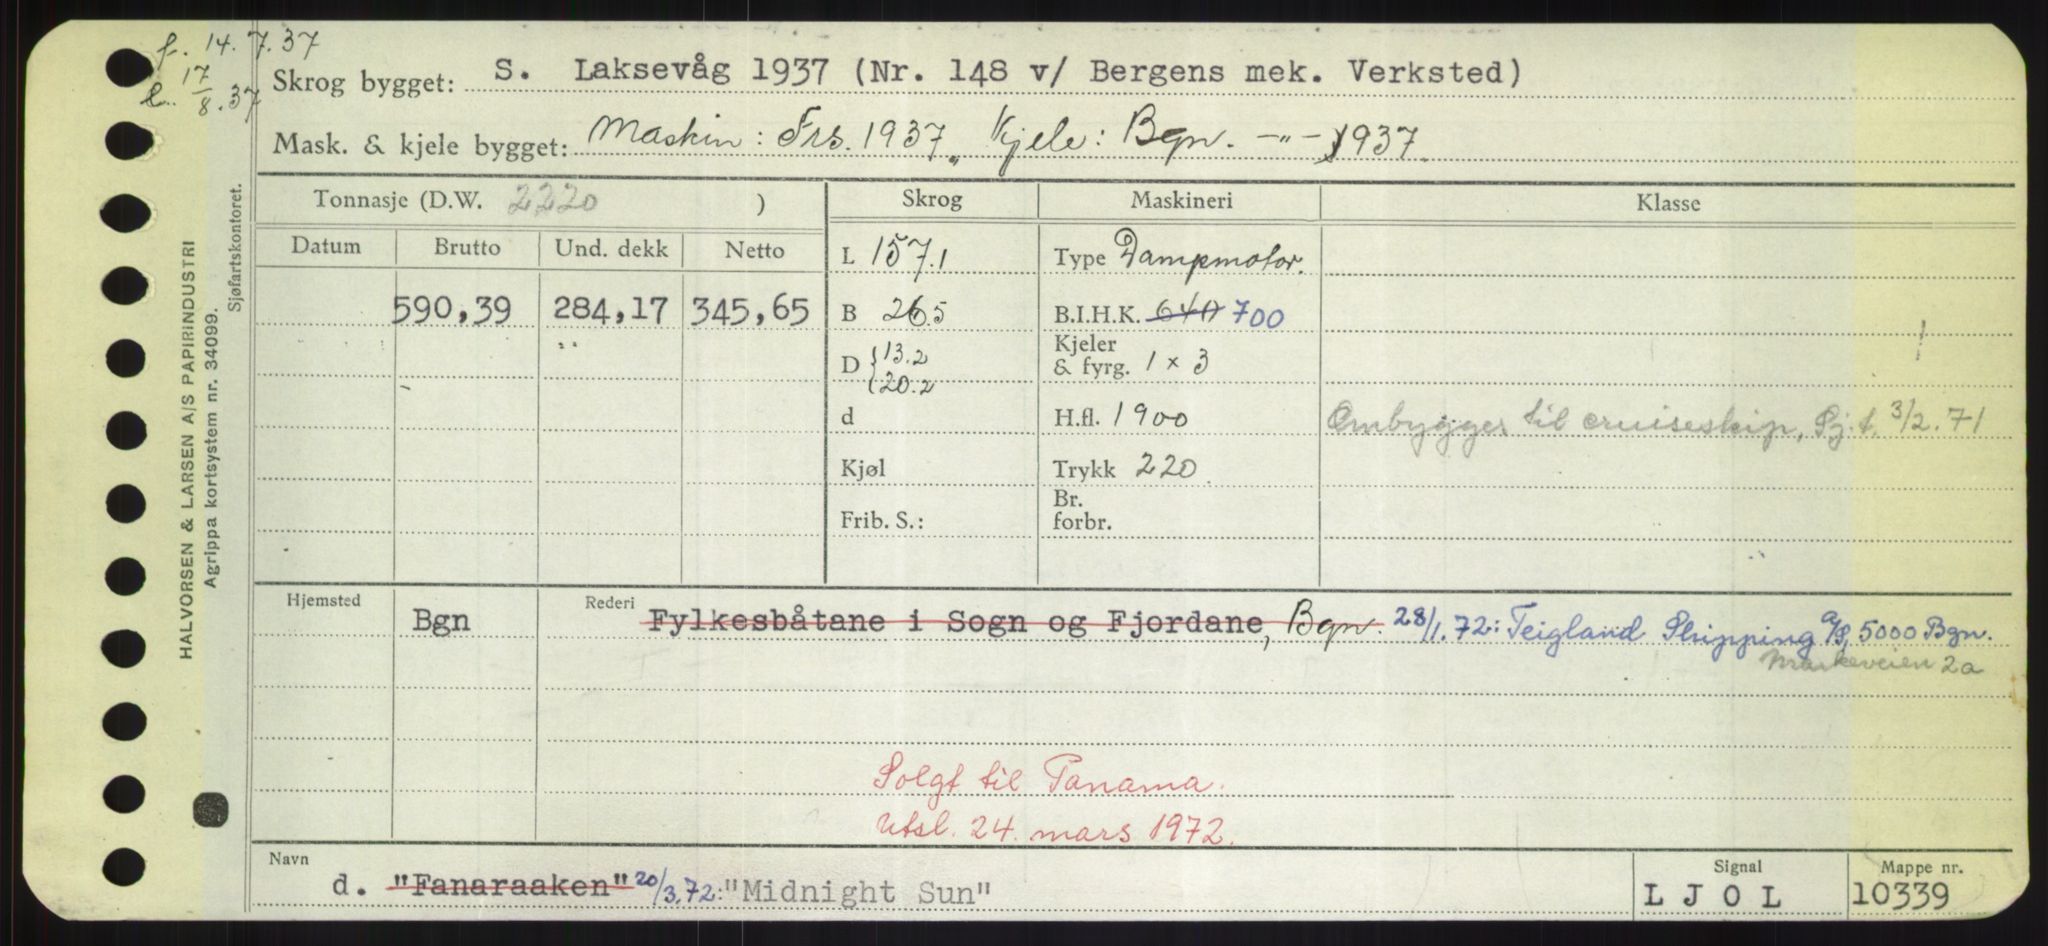 f. 14.7.37
l. 17/8.37
Skrog bygget: S. Laksevåg 1937 (Nr. 148 v/ Bergens mek. Verksted)
Mask. & kjele bygget: Maskin: Frs. 1937, Kjele: Bgn. -"- 1937.
Tonnasje (D.W. 2220 ) Skrog Maskineri Klasse
Datum Brutto Und. dekk Netto
590,39 284,17 345,65
L 157.1
B 26.5
D {13.2
{20.2
d
Kjøl
Frib. S.:
Type Dampmotor.
B.I.H.K. 640 700
Kjeler
& fyrg. 1 x 3
H.fl. 1900
Trykk 220
Br.
forbr.
Ombygges til cruiseskip, Sj.t. 3/2.71
Hjemsted Bgn Rederi Fylkesbåtane i Sogn og Fjordane, Bgn. 28/1.72: Teigland Shipping A/S, 5000 Bgn.
Markeveien 2a
Solgt til Panama.
Utsl. 24. mars 1972.
Navn d. "Fanaraaken" 20/3.72: "Midnight Sun"
Signal L J O L
Mappe nr. 10339
HALVORSEN & LARSEN A/S PAPIRINDUSTRI
Agrippa kortsystem nr. 34099.
Sjøfartskontoret.